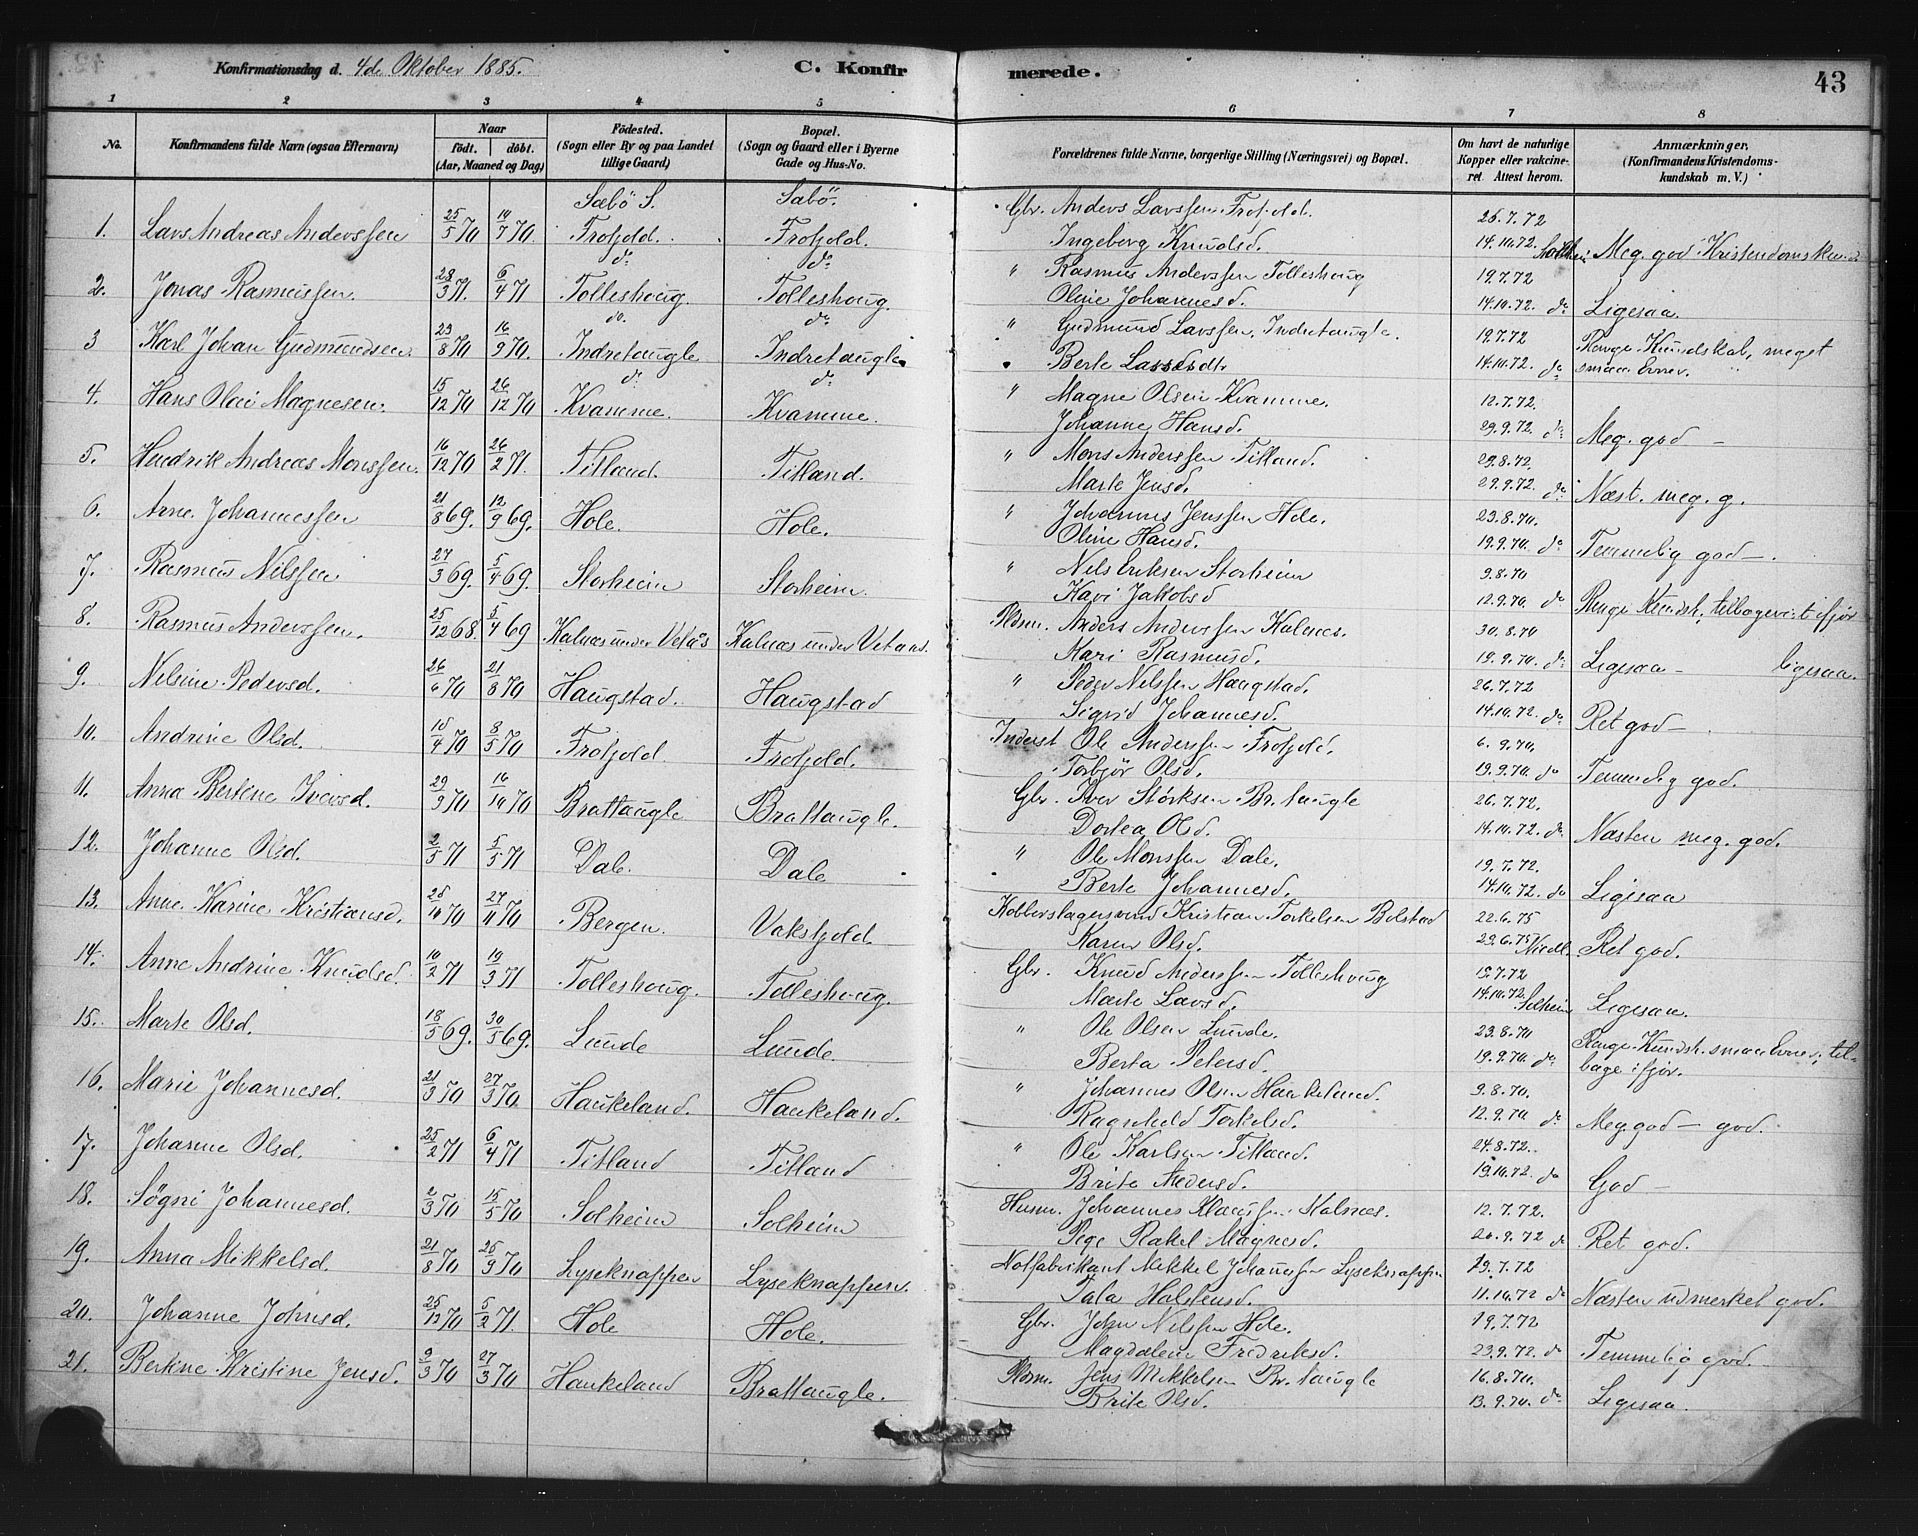 Konfirmationsdag d. 4de Oktober 1885. C. Konfirmerede. 43
1 2 3 4 5 6 7 8
No. Konfirmandens fulde Navn (ogsaa Efternavn) Naar födt. döbt. (Aar, Maaned og Dag) Födested. (Sogn eller By og paa Landet tillige Gaard) Bopæl. (Sogn og Gaard eller i Byerne Gade og Hus-No. Forældrenes fulde Navne, borgerlige Stilling (Næringsvei) og Bopæl. Om havt de naturlige Kopper eller vakcineret. Attest herom. Anmærkninger. (Konfirmandens Kristendomskundskab m. V.)
Sæbö S. Sæbö.
1. Lars Andreas Anderssen 25/5 70 10/7 70. Trofjeld. Trofjeld. Gbr. Anders Larssen Trofjeld. 26.7.72
Ingeborg Knudsd. 14.10.72. Solheim Meg. god Kristendomskund
do do
2. Jonas Rasmussen. 28/3 71. 6/4 71 Tolleshoug. Tolleshoug. " Rasmus Anderssen Tolleshoug 19.7.72
Oline Johannesd. 14.10.72. do Ligesaa.
do. do
3 Karl Johan Gudmundsen. 23/8 70 16/9 70. Indretaugle Indretaugle. " Gudmund Larssen, Indretaugle. 19.7.72 Ringe Kundskab, meget
Berte Lassesdtr 14.10.72. do smaa Evner.
do do
4. Hans Olai Magnesen. 15/12 70 26/12 70 Kvamme. Kvamme. " Magne Olsen Kvamme. 12.7.72.
Johanne Hansd. 29.9.72. do Meg. god —
5. Hendrik Andreas Monssen. 16/12 70 26/2 71. Titland. Titland. " Mons Anderssen Titland. 29.8.72.
Marte Jensd. 29.9.72. do Næst. meg. g.
6. Arne Johannessen 21/8 69. 12/9 69. Hole. Hole. " Johannes Jenssen Hole. 23.8.70.
Oline Hansd. 19.9.70. do Temmelig god —.
7. Rasmus Nilssen 27/3 69. 5/4 69. Storheim Storheim. " Nils Eriksen Storheim 9.8.70
Kari Jakobsd 12.9.70. do Ringe Kundsk., tilbagevist ifjor
8. Rasmus Anderssen. 25/12 68. 5/4 69 Kalnæs under Vetaas Kalnæs under Vetaas. Pldsm. Anders Anderssen Kalnæs. 30.8.70
Kari Rasmusd. 19.9.70. do Ligesaa — ligesaa.
9. Nelsine Pedersd. 26/6 70 21/8 70 Haugstad. Haugstad " Peder Nilssen Haugstad. 26.7.72
Sigrid Johannesd. 14.10.72. do Ret god —
10. Andrine Olsd. 10/4 70 8/5 70 Trofjeld. Trofjeld. Inderst Ole Anderssen Trofjeld. 6.9.70.
Torbjør Olsd. 19.9.70. do Temmelig god.
11. Anna Bertine Iversd. 29/9 70 16/10 70 Brattaugle Brattaugle. Gbr. Iver Størksen Br.taugle 26.7.72.
Dortea Olsd. 14.10.72. do. Næsten meg. god.
12. Johanne Olsd. 2/5 71 5/5 71 Dale. Dale " Ole Monssen Dale. 19.7.72
Berte Johannesd. 14.10.72. do Ligesaa
13. Anne Karine Kristiansd. 28/10 70 27/11 70 Bergen. Vaksfjeld. Kobberslagersvend Kristian Torkelsen Bolstad 22.6.75
Karen Olsd. 29.6.75 Ret god.
14. Anne Andrine Knudsd. 10/2 71 19/3 71 Tolleshoug. Tolleshoug. Gbr. Knud Anderssen Tolleshoug 19.7.72
Marte Larsd. 14.10.72. Solheim Ligesaa.
15. Marte Olsd. 18/5 69. 30/5 69. Lunde Lunde. " Ole Olsen Lunde. 23.8.70 Ringe Kundsk. smaa Evner; til-
Berta Petersd. 19.9.70. do bage ifjor.
16. Marie Johannesd. 21/3 70 27/3 70. Haukeland. Haukeland. " Johannes Olsen Haukeland. 9.8.70.
Ragnhild Torkelsd. 12.9.70 do Meg. god — god.
17. Johanne Olsd. 25/2 71 6/4 71 Titland Titland " Ole Karlsen Titland. 24.8.72.
Brite Nedersd. 19.10.72. do God —
18. Søgni Johannesd. 2/3 70 15/5 70 Solheim Solheim Husm. Johannes Klaussen Kalnæs. 12.7.72.
Rakel Magnesd. 20.9.72 do Ret god.
19. Anna Mikkelsd. 21/8 70 25/9 70. Lyseknappen Lyseknappen. Notfabrikant Mikkel Johannessen Lyseknappen 19.7.72
Tala Halstensd. 11.10.72 do Næsten udmerket god.
20. Johanne Johnsd. 25/12 70 5/2 71. Hole Hole. Gbr. John Nilssen Hole. 19.7.72
Magdalene Fredriksd. 23.9.72 do Temmelig god.
21. Bertine Kristine Jensd. 9/3 70 27/3 70 Haukeland Brattaugle. Pldsm. Jens Mikkelsen Br.taugle 16.8.70.
Brite Olsd. 13.9.70. do Ligesaa.